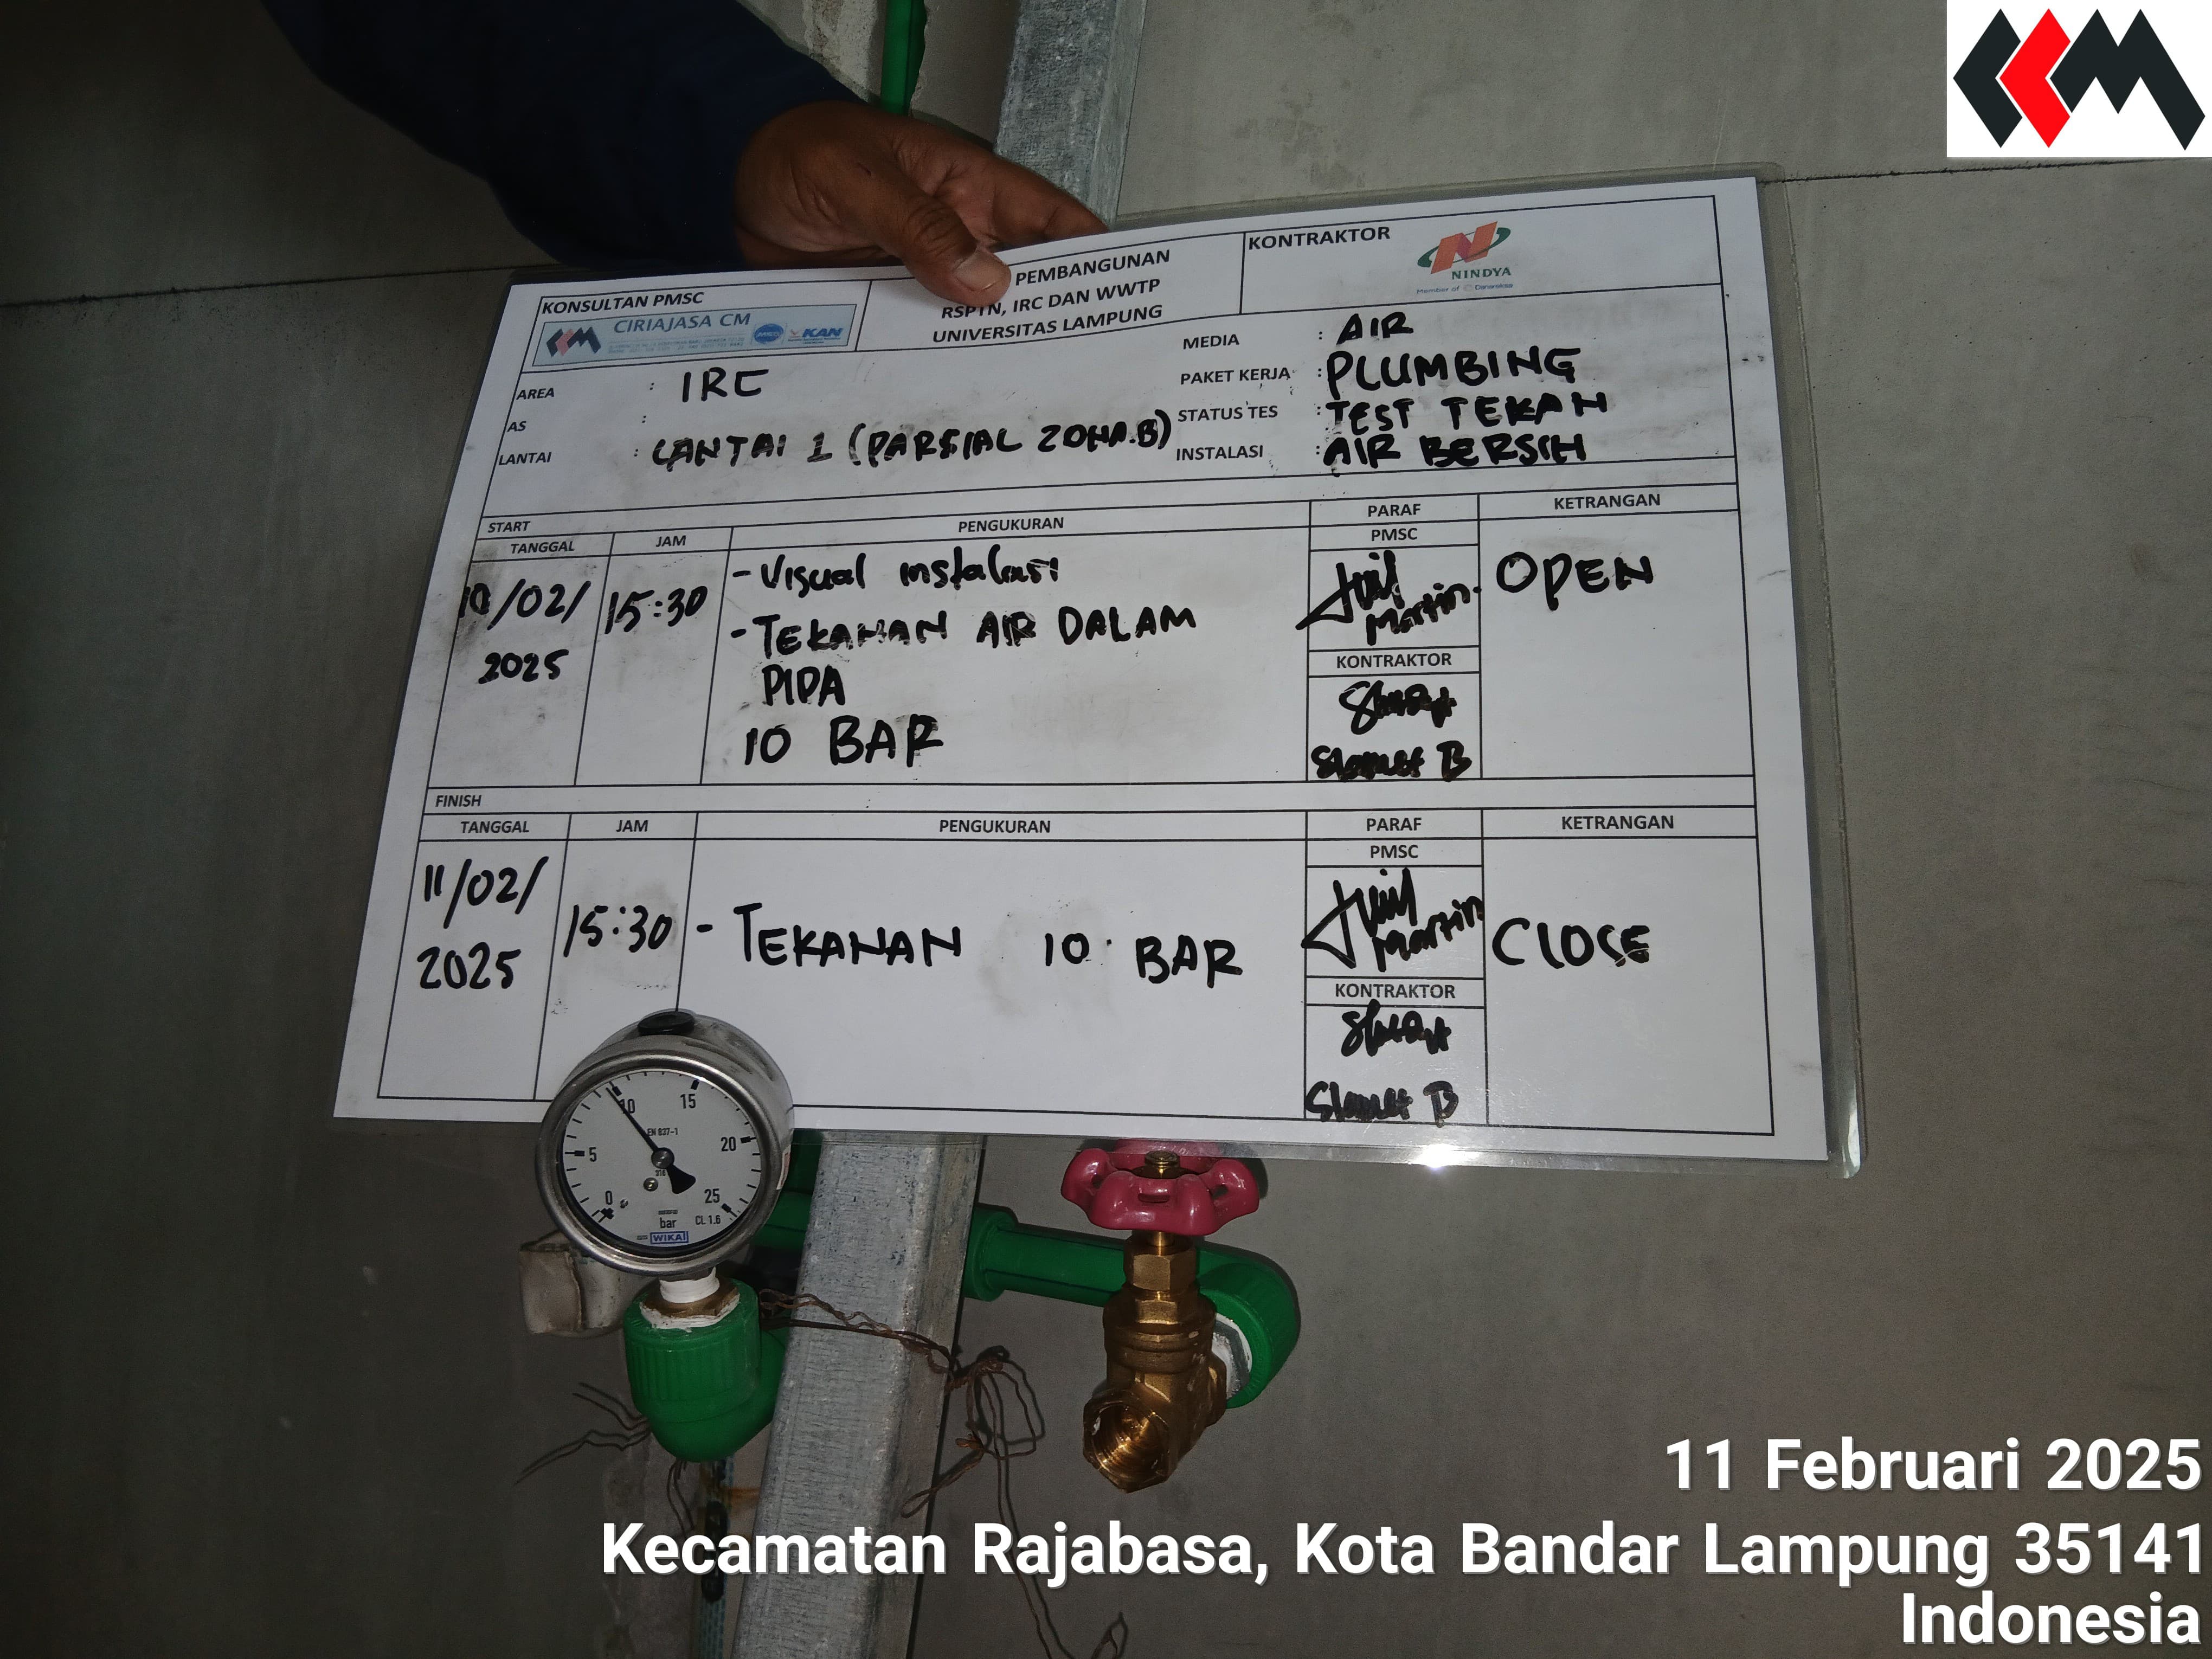 KONSULTAN PMSC
CIRIAJASA CM
KAN
PEMBANGUNAN
RSPTN, IRC DAN WWTP
UNIVERSITAS LAMPUNG
KONTRAKTOR
NINDYA
Member of Danareksa
AREA : IRC
AS :
LANTAI : LANTAI 1 (PARSIAL ZONA.B)
MEDIA : AIR
PAKET KERJA : PLUMBING
STATUS TES : TEST TEKAN
INSTALASI : AIR BERSIH
START
TANGGAL JAM PENGUKURAN PARAF KETRANGAN
PMSC
10/02/
2025
15:30
- Visual instalasi
- TEKANAN AIR DALAM
PIPA
10 BAR
Martin
OPEN
KONTRAKTOR
Slamet B
FINISH
TANGGAL JAM PENGUKURAN PARAF KETRANGAN
PMSC
11/02/
2025
15:30
- TEKANAN 10 BAR
Martin
CLOSE
KONTRAKTOR
Slamet B
0 5 10 15 20 25
EN 837-1
bar
CL 1.6
WIKAI
11 Februari 2025
Kecamatan Rajabasa, Kota Bandar Lampung 35141
Indonesia